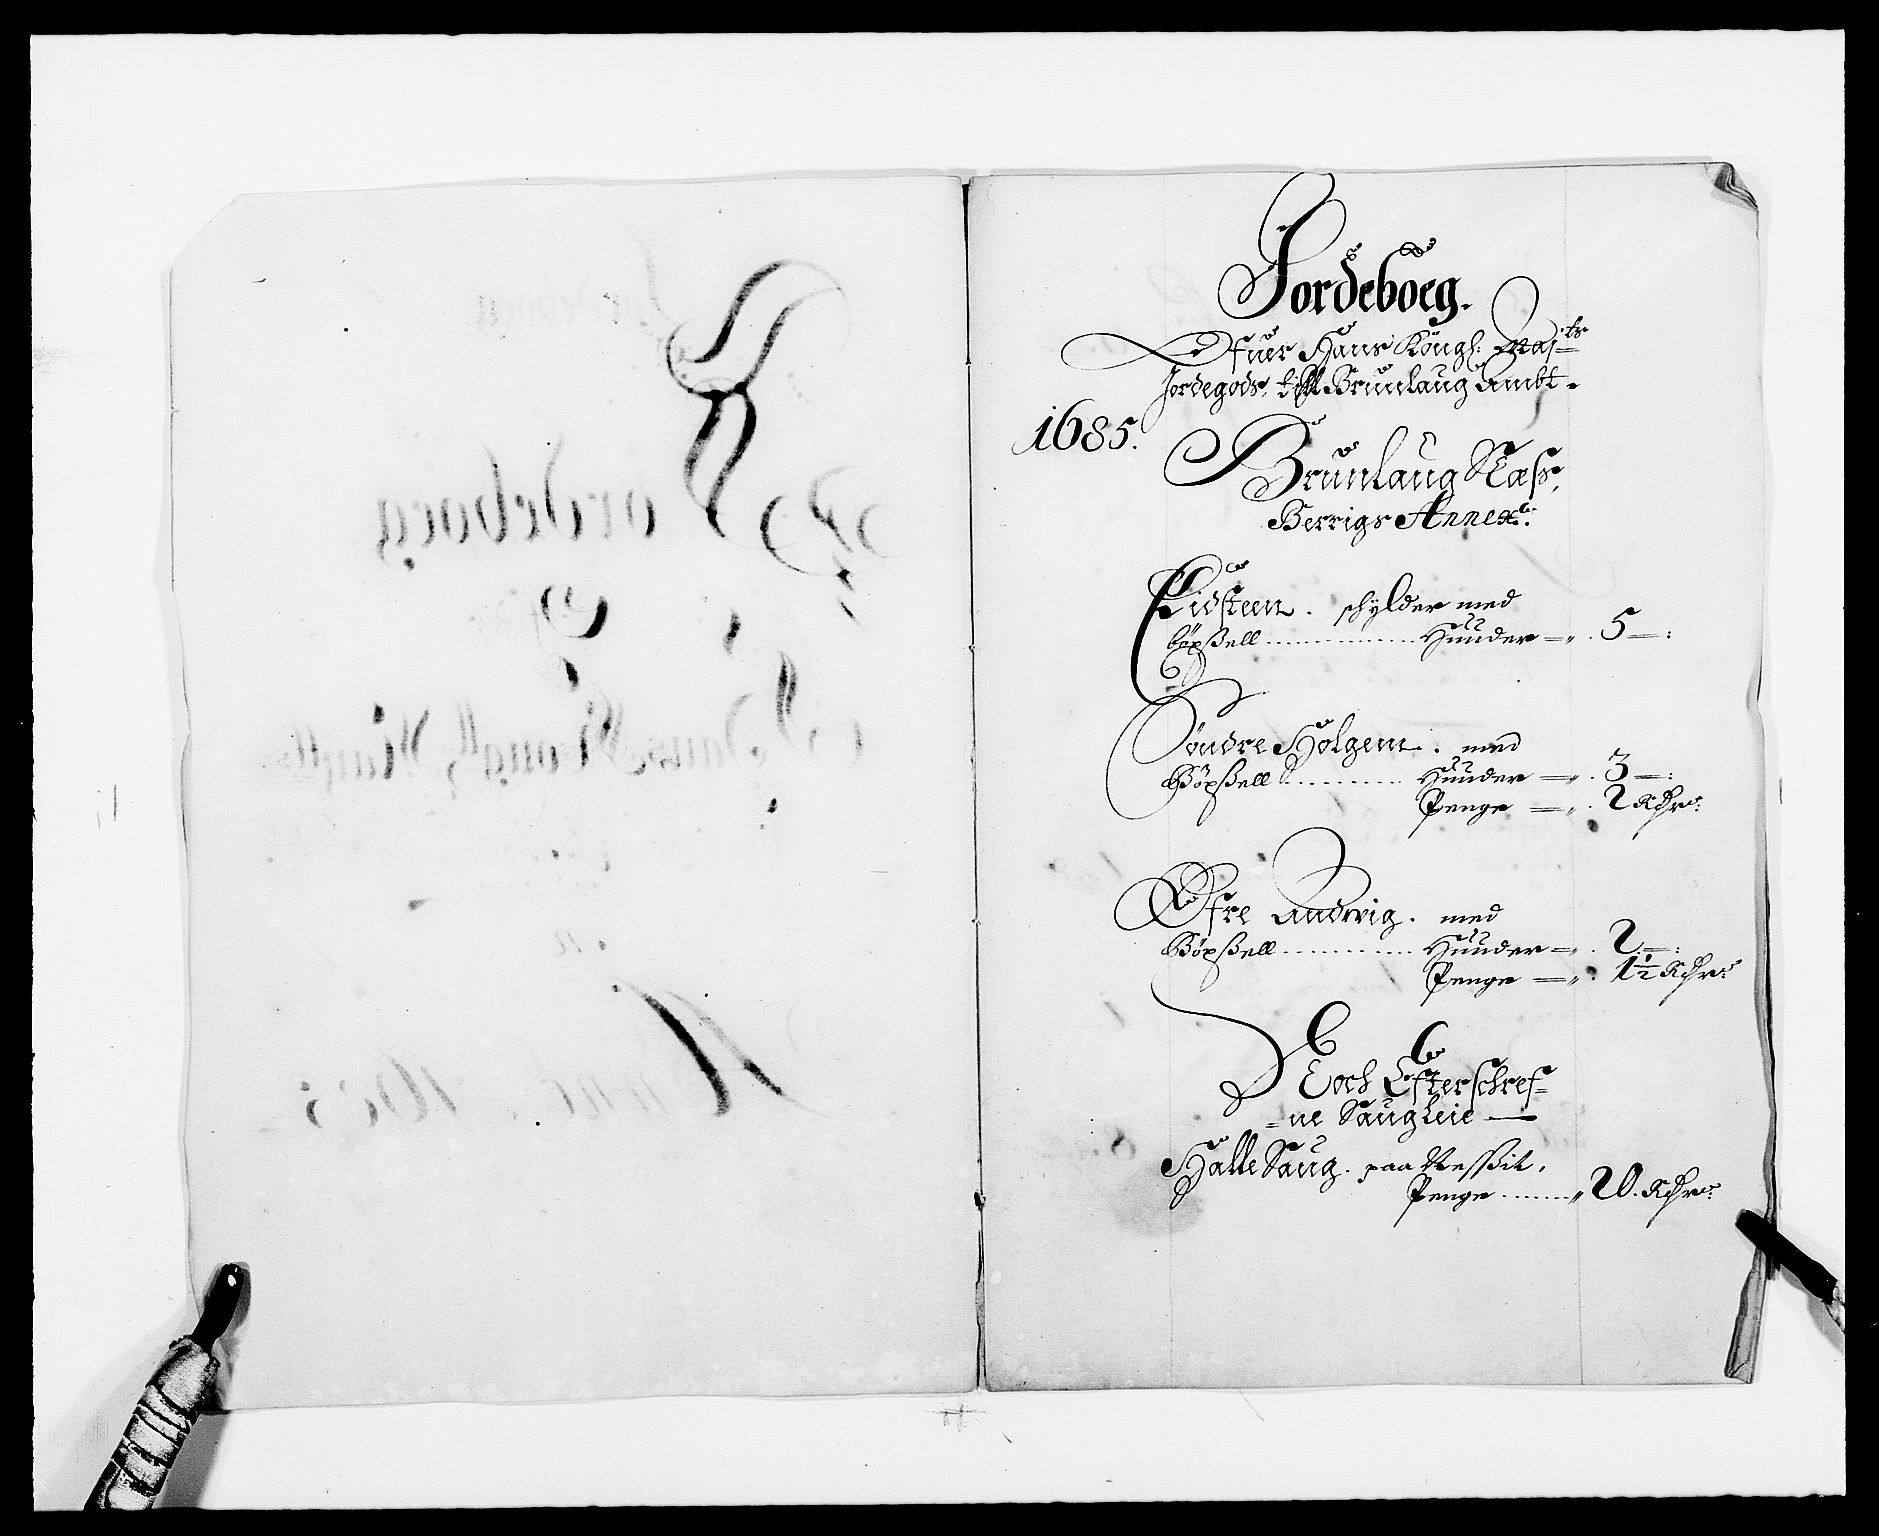 Jordeboeg.
Ofuer Hans Kongl: Maj:ts
Jordegods, till Brunlaug Ambt.
1685.
Brunlaug Næss,
Berrigs Annex:
Eidsteen. schylder med
bøxsell ......... Huuder = 5 —:
Søndre Hølgem. med
Bøxsell ......... Huuder = 3 —:
Penge = 2 Rdr:
Øfre Andwig. med
Bøxsell ......... Huuder = 2 —:
Penge = 1½ Rdr:
Noch Efterschref=
=ne Saugleie —
Halle Saug. paa
Penge ...... 20. Rdr: